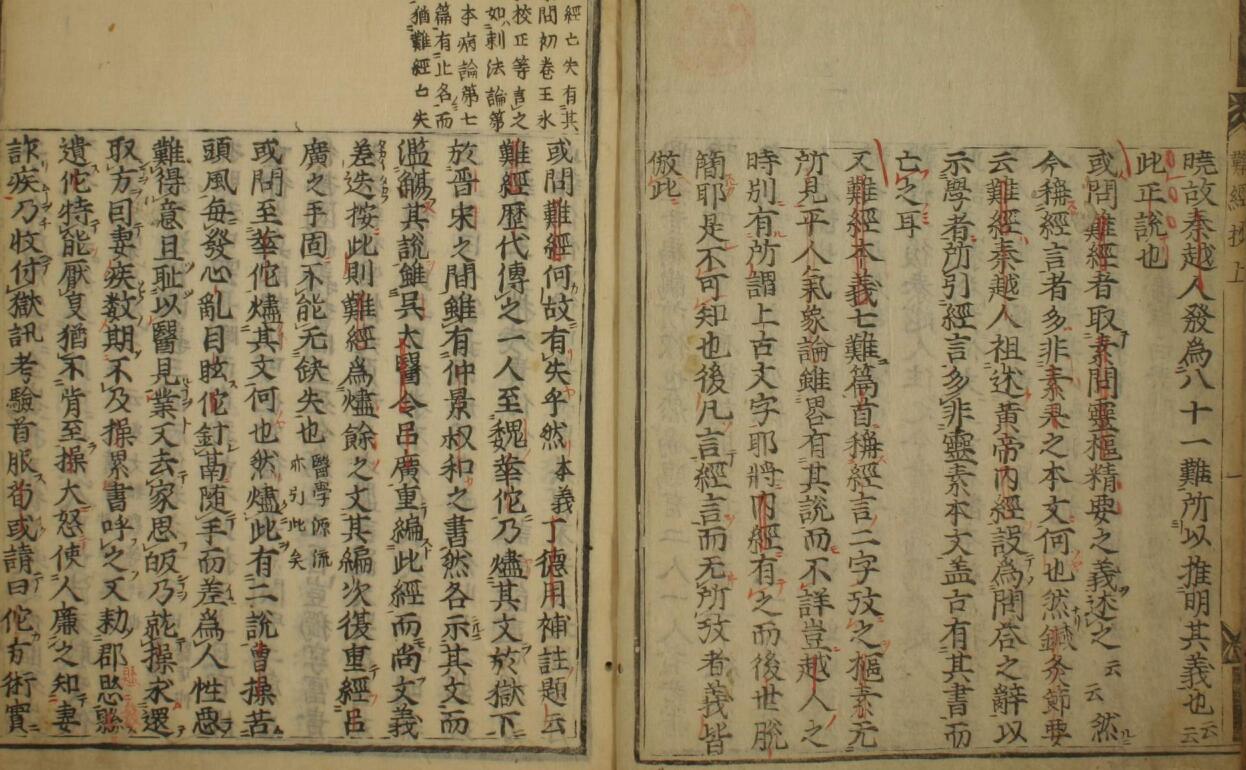 難經抄上
一
曉故秦越人發爲八十一難所以推明其義也云云
此正說也
或問難經者取素問靈樞精要之義述之云云然
今稱經言者多非素灵之本文何也然鍼灸節要
云難經秦越人祖述黄帝内經設爲問荅之辭以
示學者所引經言多非靈素本文盖古有其書而
亡之耳
又難經本義七難篇首稱經言二字攷之樞素无
所見平人氣象論雖畧有其說而不詳豈越人之
時別有所謂上古文字耶將内經有之而後世脫
簡耶是不可知也後凡言經言而无所攷者義皆
倣此
經亡失有其
問初卷王氷
校正等言之
如刺法論第
本病論第七
篇有止名而
猶難經亡失
或問難經何故有失乎然本義丁德用補註題云
難經歴代傳之一人至魏華佗乃燼其文於獄下
於晋宋之間雖有仲景叔和之書然各示其文而
濫觴其說雖呉太醫令呂廣重編此經而尚文義
差迭按此則難經爲燼餘之文其編次復重經呂
廣之手固不能无缺失也醫學源流亦引此矣
或問至華佗燼其文何也然燼此有二說曹操苦
頭風每發心亂目眩佗針鬲随手而差爲人性惡
難得意且耻以醫見業又去家思皈乃就操求還
取方曰妻疾数期不及操累書呼之又勑郡縣
遣佗特能厭叓猶不肯至操大怒使人廉之知妻
詐疾乃收付獄訊考驗首服荀或請曰佗方術實